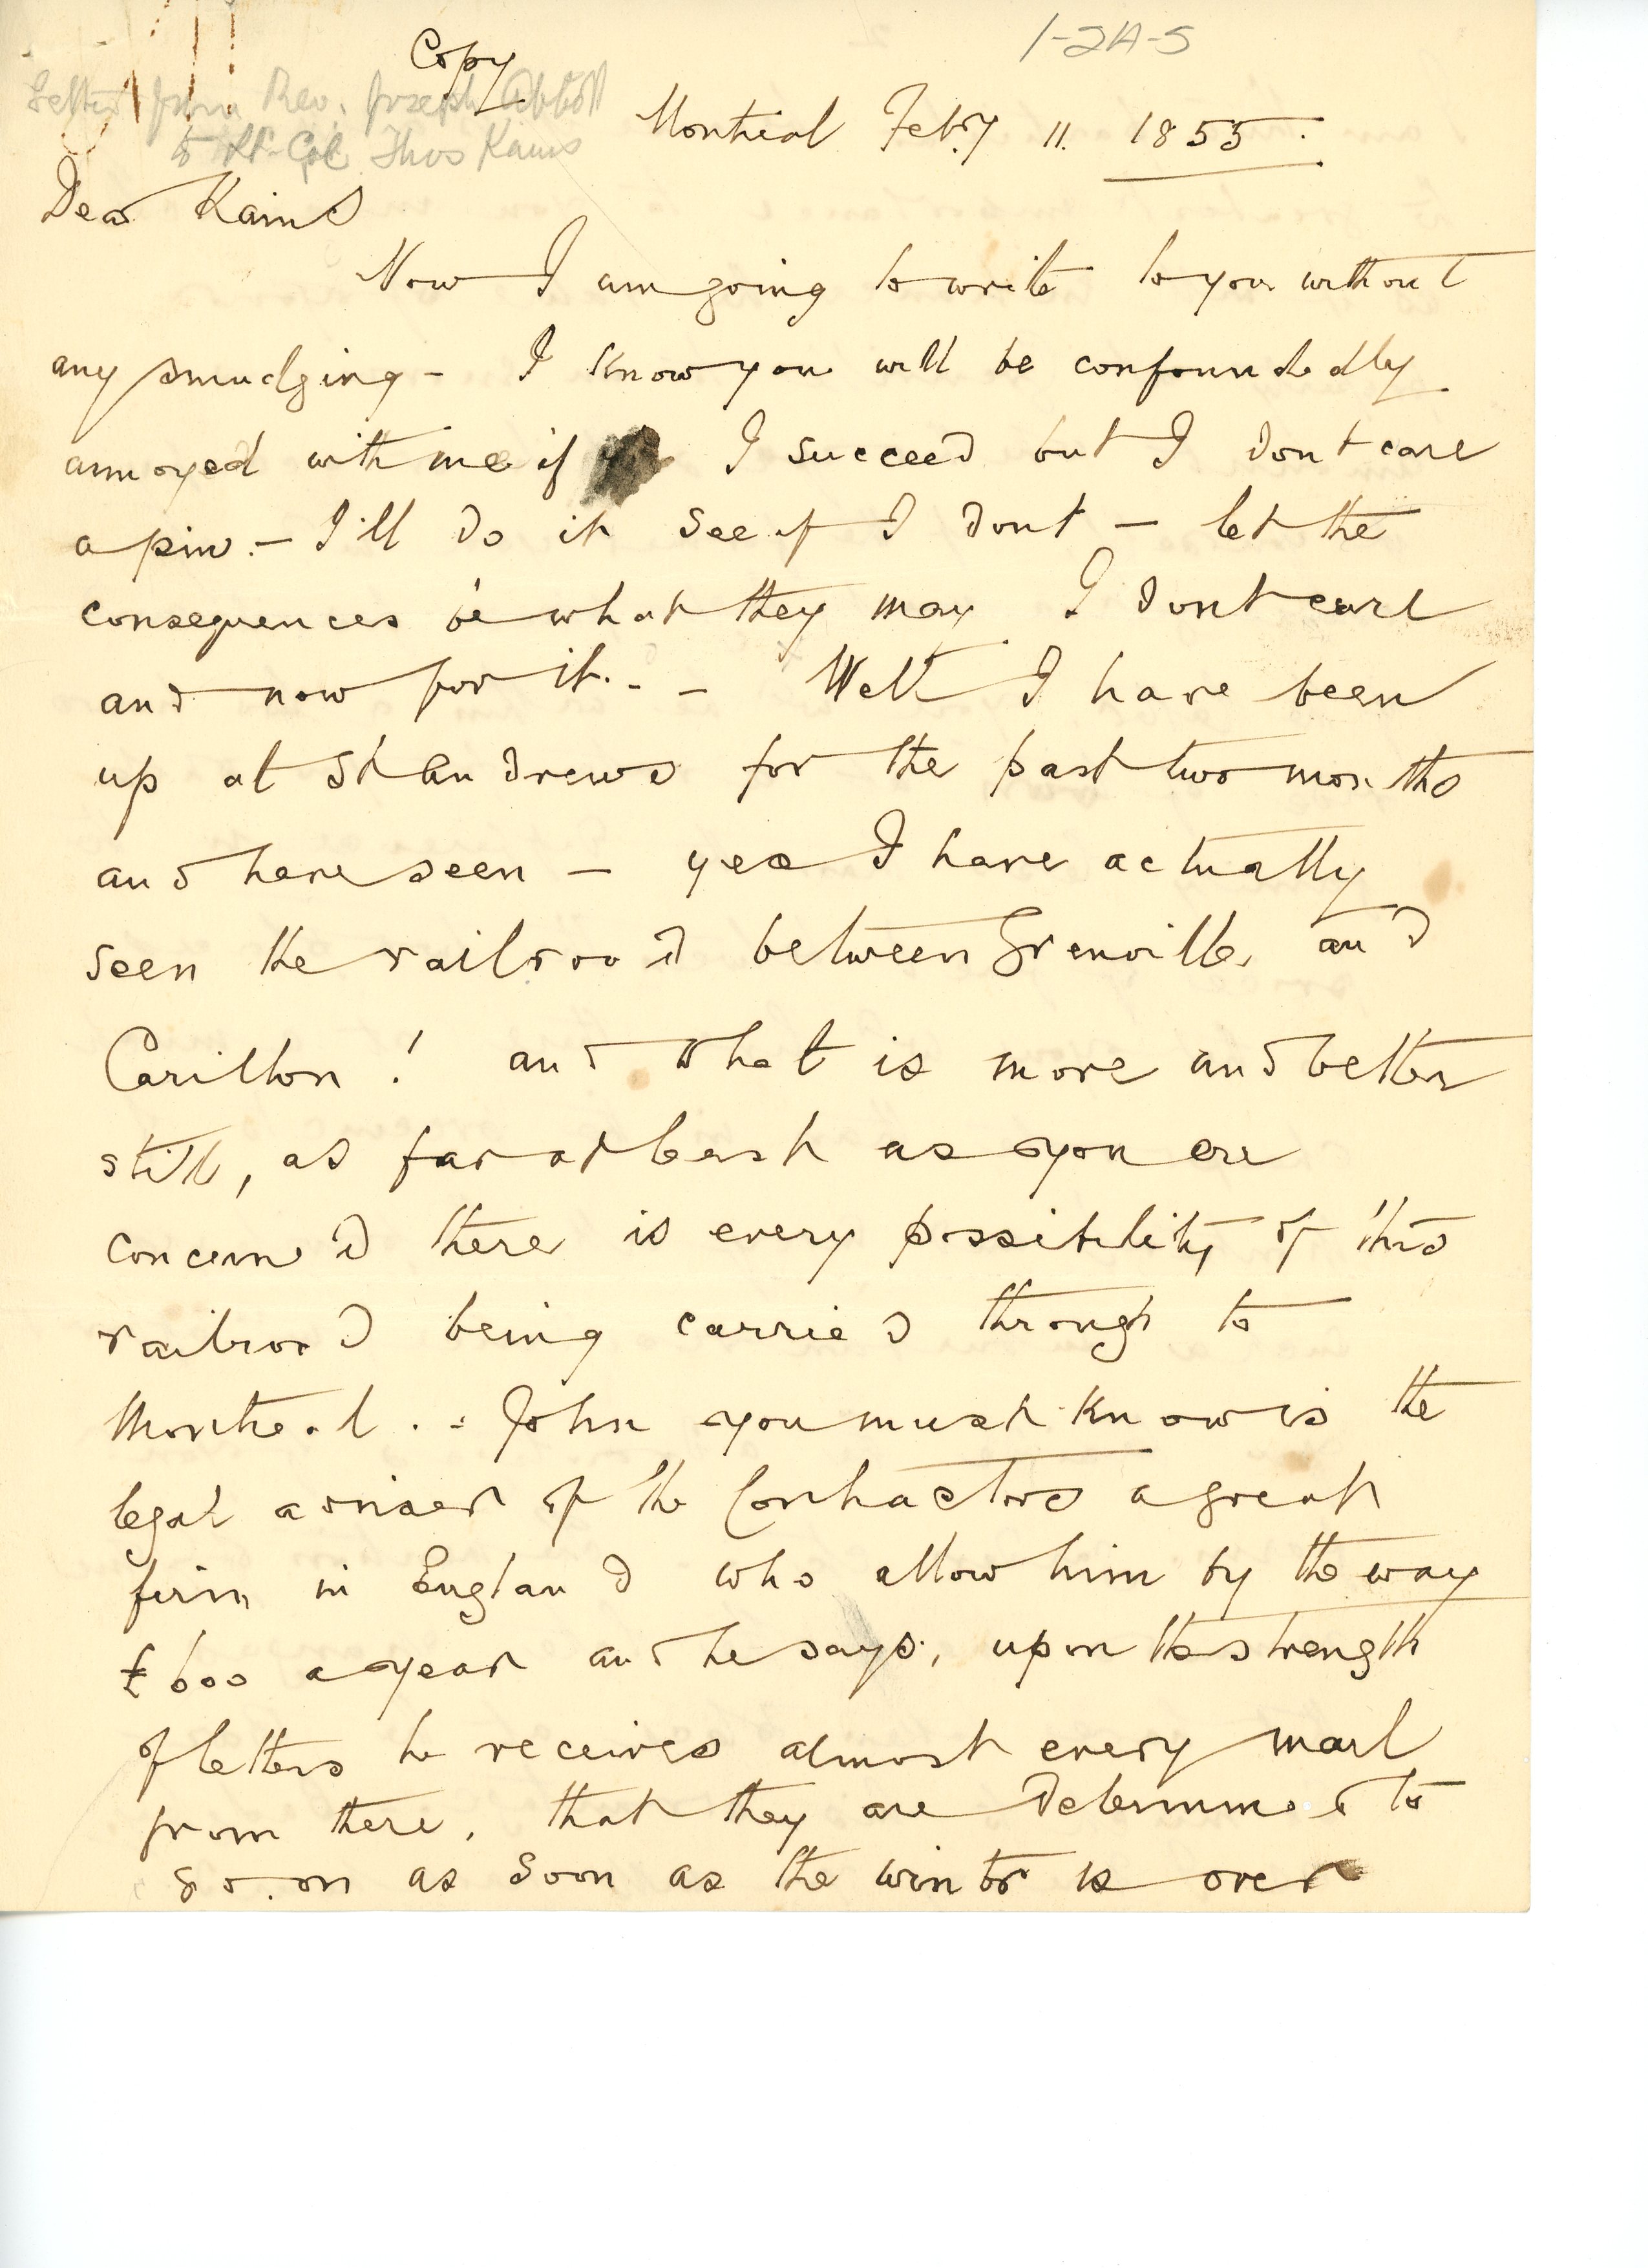 Copy
1-2A-5
Letter from Rev. Joseph Abbott
to Lt-Col. Thos Kains
Montreal Feb.y 11. 1855.
Dear Kains
Now I am going to write to you without
any smudging - I know you will be confoundedly
annoyed with me if I succeed but I dont care
a pin. - I'll do it see if I dont - let the
consequences be what they may I dont care
and now for it. - - Well I have been
up at St Andrews for the past two months
and have seen - yea I have actually
seen the railroad between Grenville and
Carillon! and what is more and better
still, as far at least as you are
concerned there is every possibility of this
railroad being carried through to
Montreal. - John you must know is the
legal adviser of the Contractors a great
firm in England who allow him by the way
£600 a year and he says, upon the strength
of letters he receives almost every mail
from there, that they are determined to
go on as soon as the winter is over